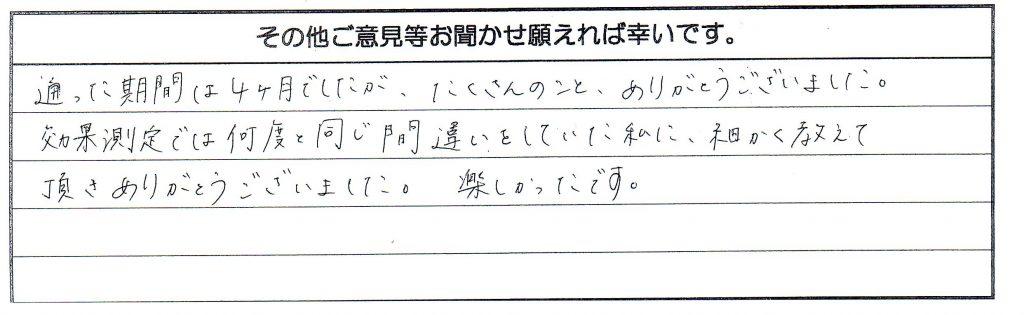 その他ご意見等お聞かせ願えれば幸いです。
通った期間は4ヶ月でしたが、たくさんのこと、ありがとうございました。
効果測定では何度も同じ間違いをしていた私に、細かく教えて
頂きありがとうございました。 楽しかったです。